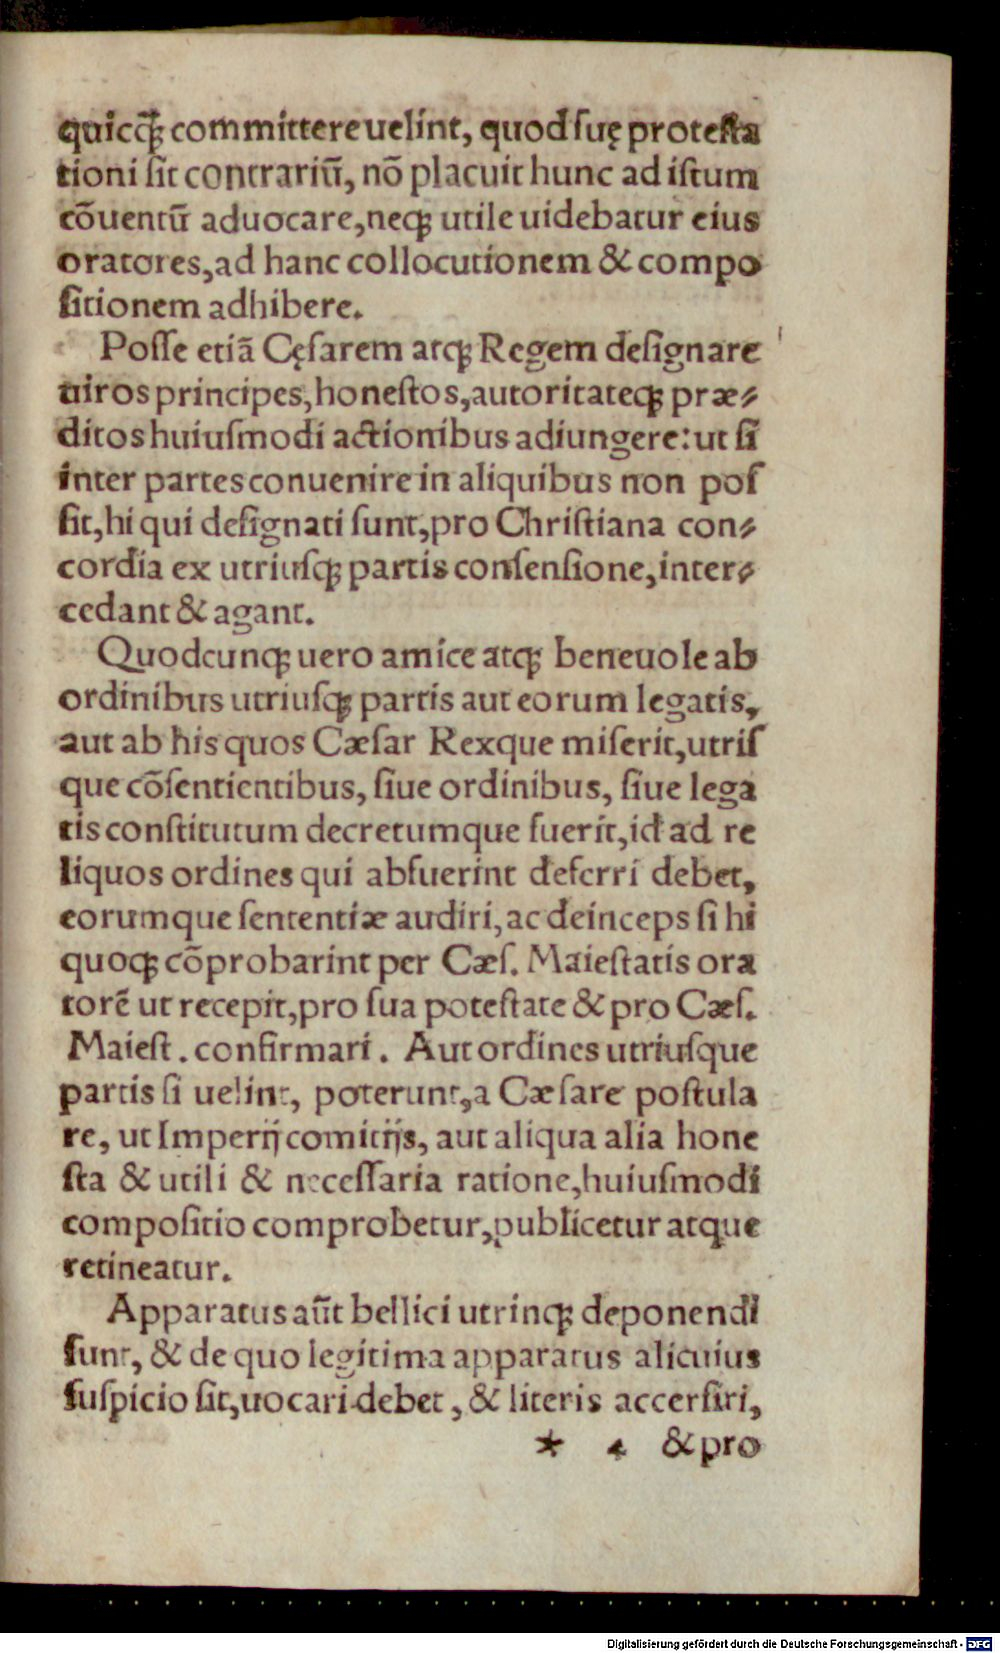 quicq̃ꝫ committere uelint, quod suę protesta
tioni sit contrariũ, nõ placuit hunc ad istum
cõuentũ aduocare, neqꝫ utile uidebatur eius
oratores, ad hanc collocutionem & compo
sitionem adhibere.
Posse etiã Cęsarem atqꝫ Regem designare
uiros principes, honestos, autoritateqꝫ præ⸗
ditos huiusmodi actionibus adiungere: ut si
inter partes conuenire in aliquibus non pos
sit, hi qui designati sunt, pro Christiana con⸗
cordia ex utriusqꝫ partis consensione, inter⸗
cedant & agant.
Quodcunqꝫ uero amice atqꝫ beneuole ab
ordinibus utriusqꝫ partis aut eorum legatis,
aut ab his quos Cæsar Rexque miserit, utris
que cõsentientibus, siue ordinibus, siue lega
tis constitutum decretumque fuerit, id ad re
liquos ordines qui abfuerint deferri debet,
eorumque sententiæ audiri, ac deinceps si hi
quoqꝫ cõprobarint per Cæs. Maiestatis ora
torẽ ut recepit, pro sua potestate & pro Cæs.
Maiest. confirmari. Aut ordines utriusque
partis si uelint, poterunt, a Cæsare postula
re, ut Imperij comitijs, aut aliqua alia hone
sta & utili & necessaria ratione, huiusmodi
compositio comprobetur, publicetur atque
retineatur.
Apparatus aũt bellici utrinqꝫ deponendi
sunt, & de quo legitima apparatus alicuius
suspicio sit, uocari debet, & literis accersiri,
* 4 & pro
Digitalisierung gefördert durch die Deutsche Forschungsgemeinschaft - DFG